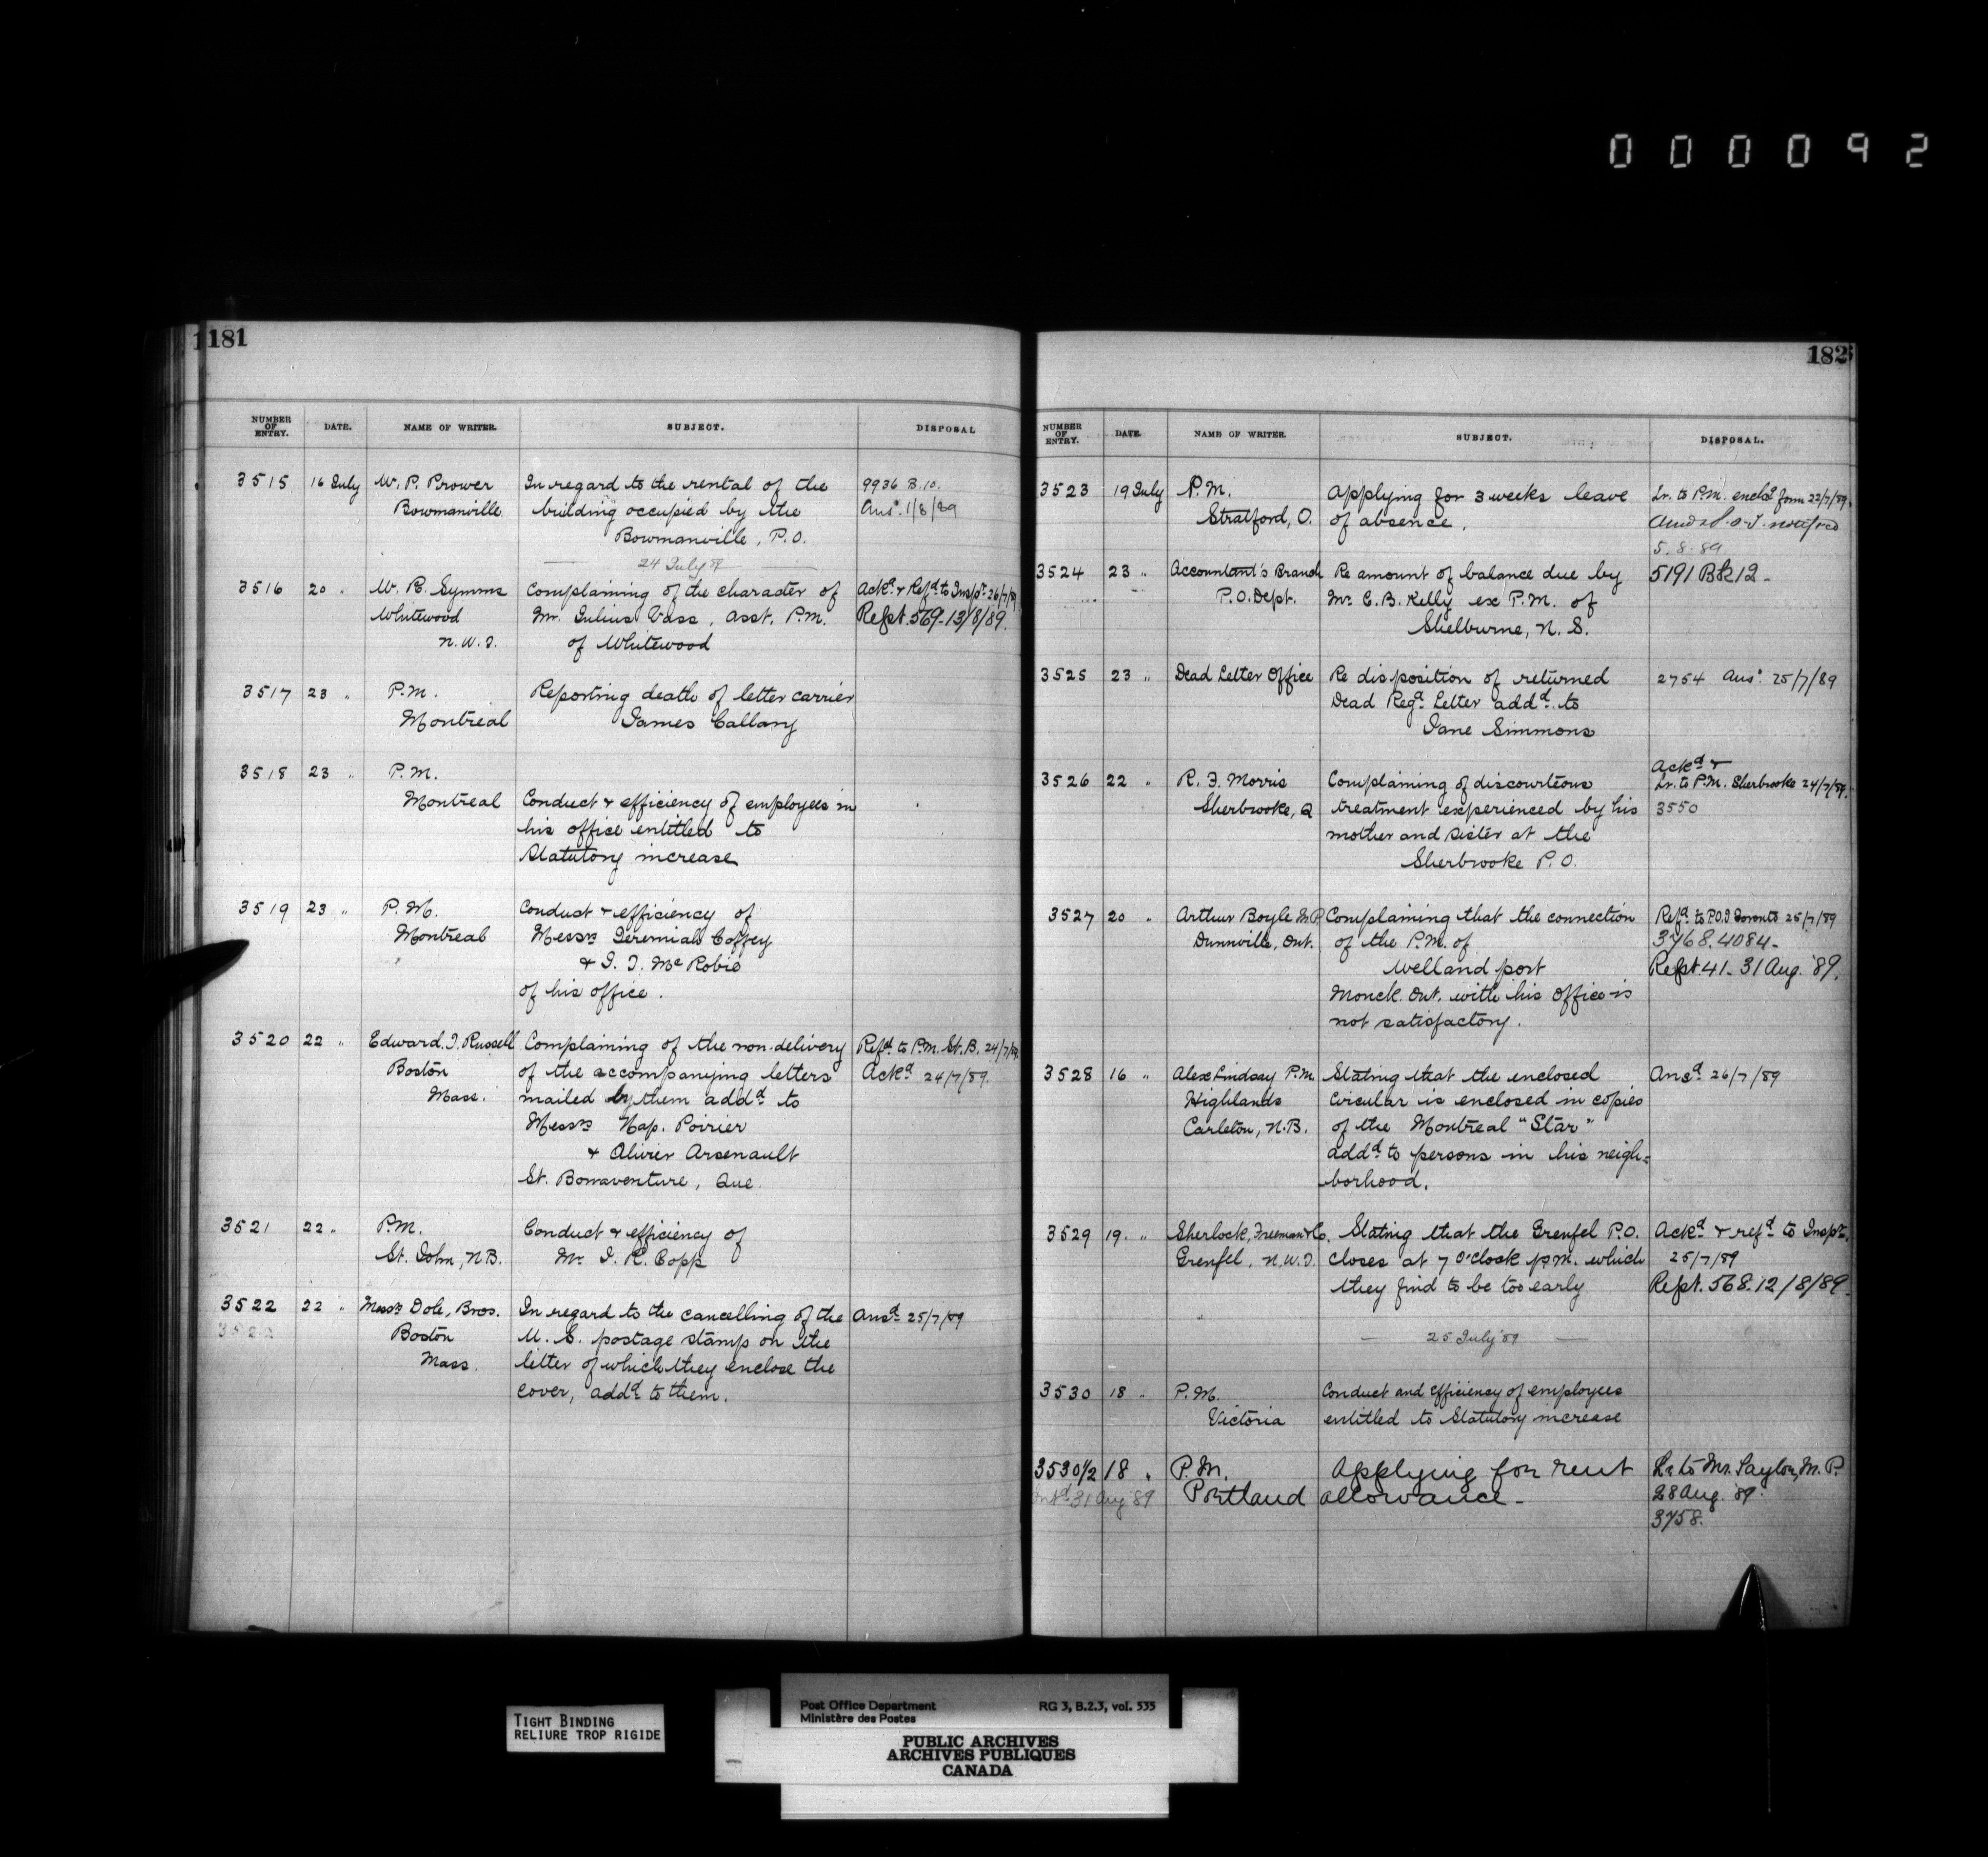 000092
181
NUMBER OF ENTRY. DATE. NAME OF WRITER. SUBJECT. DISPOSAL
3515 16 July W. P. Prower In regard to the rental of the 9936 B.10.
Bowmanville building occupied by the Ansd. 1/8/89
Bowmanville, P.O.
24 July 89
3516 20 " W. R. Symms Complaining of the character of Ackd & Refd to Inspr. 26/7/89
Whitewood Mr. Julius Vass, Asst. P.M. Rept. 569-13/8/89.
N.W.T. of Whitewood
3517 23 " P.M. Reporting death of letter carrier
Montreal James Callary
3518 23 " P.M.
Montreal Conduct & efficiency of employees in
his office entitled to
Statutory increase
3519 23 " P.M. Conduct & efficiency of
Montreal Messrs Jeremiah Coffey
& J. J. McRobie
of his office.
3520 22 " Edward. J. Russell Complaining of the non-delivery Refd to P.M. St. B. 24/7/89
Boston of the accompanying letters Ackd 24/7/89.
Mass. mailed by them addd to
Messrs Nap. Poirier
& Olivier Arsenault
St. Bonaventure, Que.
3521 22 " P.M. Conduct & efficiency of
St. John, N.B. Mr J. R. Copp
3522 22 " Messrs Dole, Bros. In regard to the cancelling of the Ansd 25/7/89
3522 Boston U. S. postage stamps on the
Mass. letter of which they enclose the
cover, addd to them.
182
NUMBER OF ENTRY. DATE. NAME OF WRITER. SUBJECT. DISPOSAL.
3523 19 July P.M. Applying for 3 weeks leave Lr. to P.M. encld form 22/7/89.
Stratford, O. of absence. P.O.I. notified
5.8.89
3524 23 " Accountant's Branch Re amount of balance due by 5191 Bk 12-
P.O. Dept. Mr C. B. Kelly ex P.M. of
Shelburne, N. S.
3525 23 " Dead Letter Office Re disposition of returned 2754 Ansd. 25/7/89
Dead Regd Letter addd to
Jane Simmons
Ackd &
3526 22 " R. F. Morris Complaining of discourteous Lr. to P.M. Sherbrooke 24/7/89.
Sherbrooke, Q treatment experienced by his 3550
mother and sister at the
Sherbrooke P.O.
3527 20 " Arthur Boyle M.P. Complaining that the connection Refd to P.O.I Toronto 25/7/89
Dunnville, Ont. of the P.M. of 3768.4084-
Welland port Rept 41-31 Aug. '89.
Monck. Ont. with his office is
not satisfactory.
3528 16 " Alex Lindsay P.M. Stating that the enclosed Ansd 26/7/89
Highlands circular is enclosed in copies
Carleton, N.B. of the Montreal "Star"
addd to persons in his neigh=
borhood.
3529 19. " Sherlock, Freeman & Co. Stating that the Grenfel P.O. Ackd & refd to Inspr.
Grenfel, N.W.T. closes at 7 O'Clock p.m. which 25/7/89
they find to be too early Rept. 568.12/8/89-
25 July '89
3530 18 " P.M. Conduct and efficiency of employees
Victoria entitled to Statutory increase
3530 1/2 18 " P.M. Applying for rent Lr. to Mr. Taylor, M.P.
Entd 31 Aug '89 Portland allowance- 28 Aug. '89.
3758.
TIGHT BINDING
RELIURE TROP RIGIDE
Post Office Department RG 3, B.2.3, vol. 535
Ministère des Postes
PUBLIC ARCHIVES
ARCHIVES PUBLIQUES
CANADA